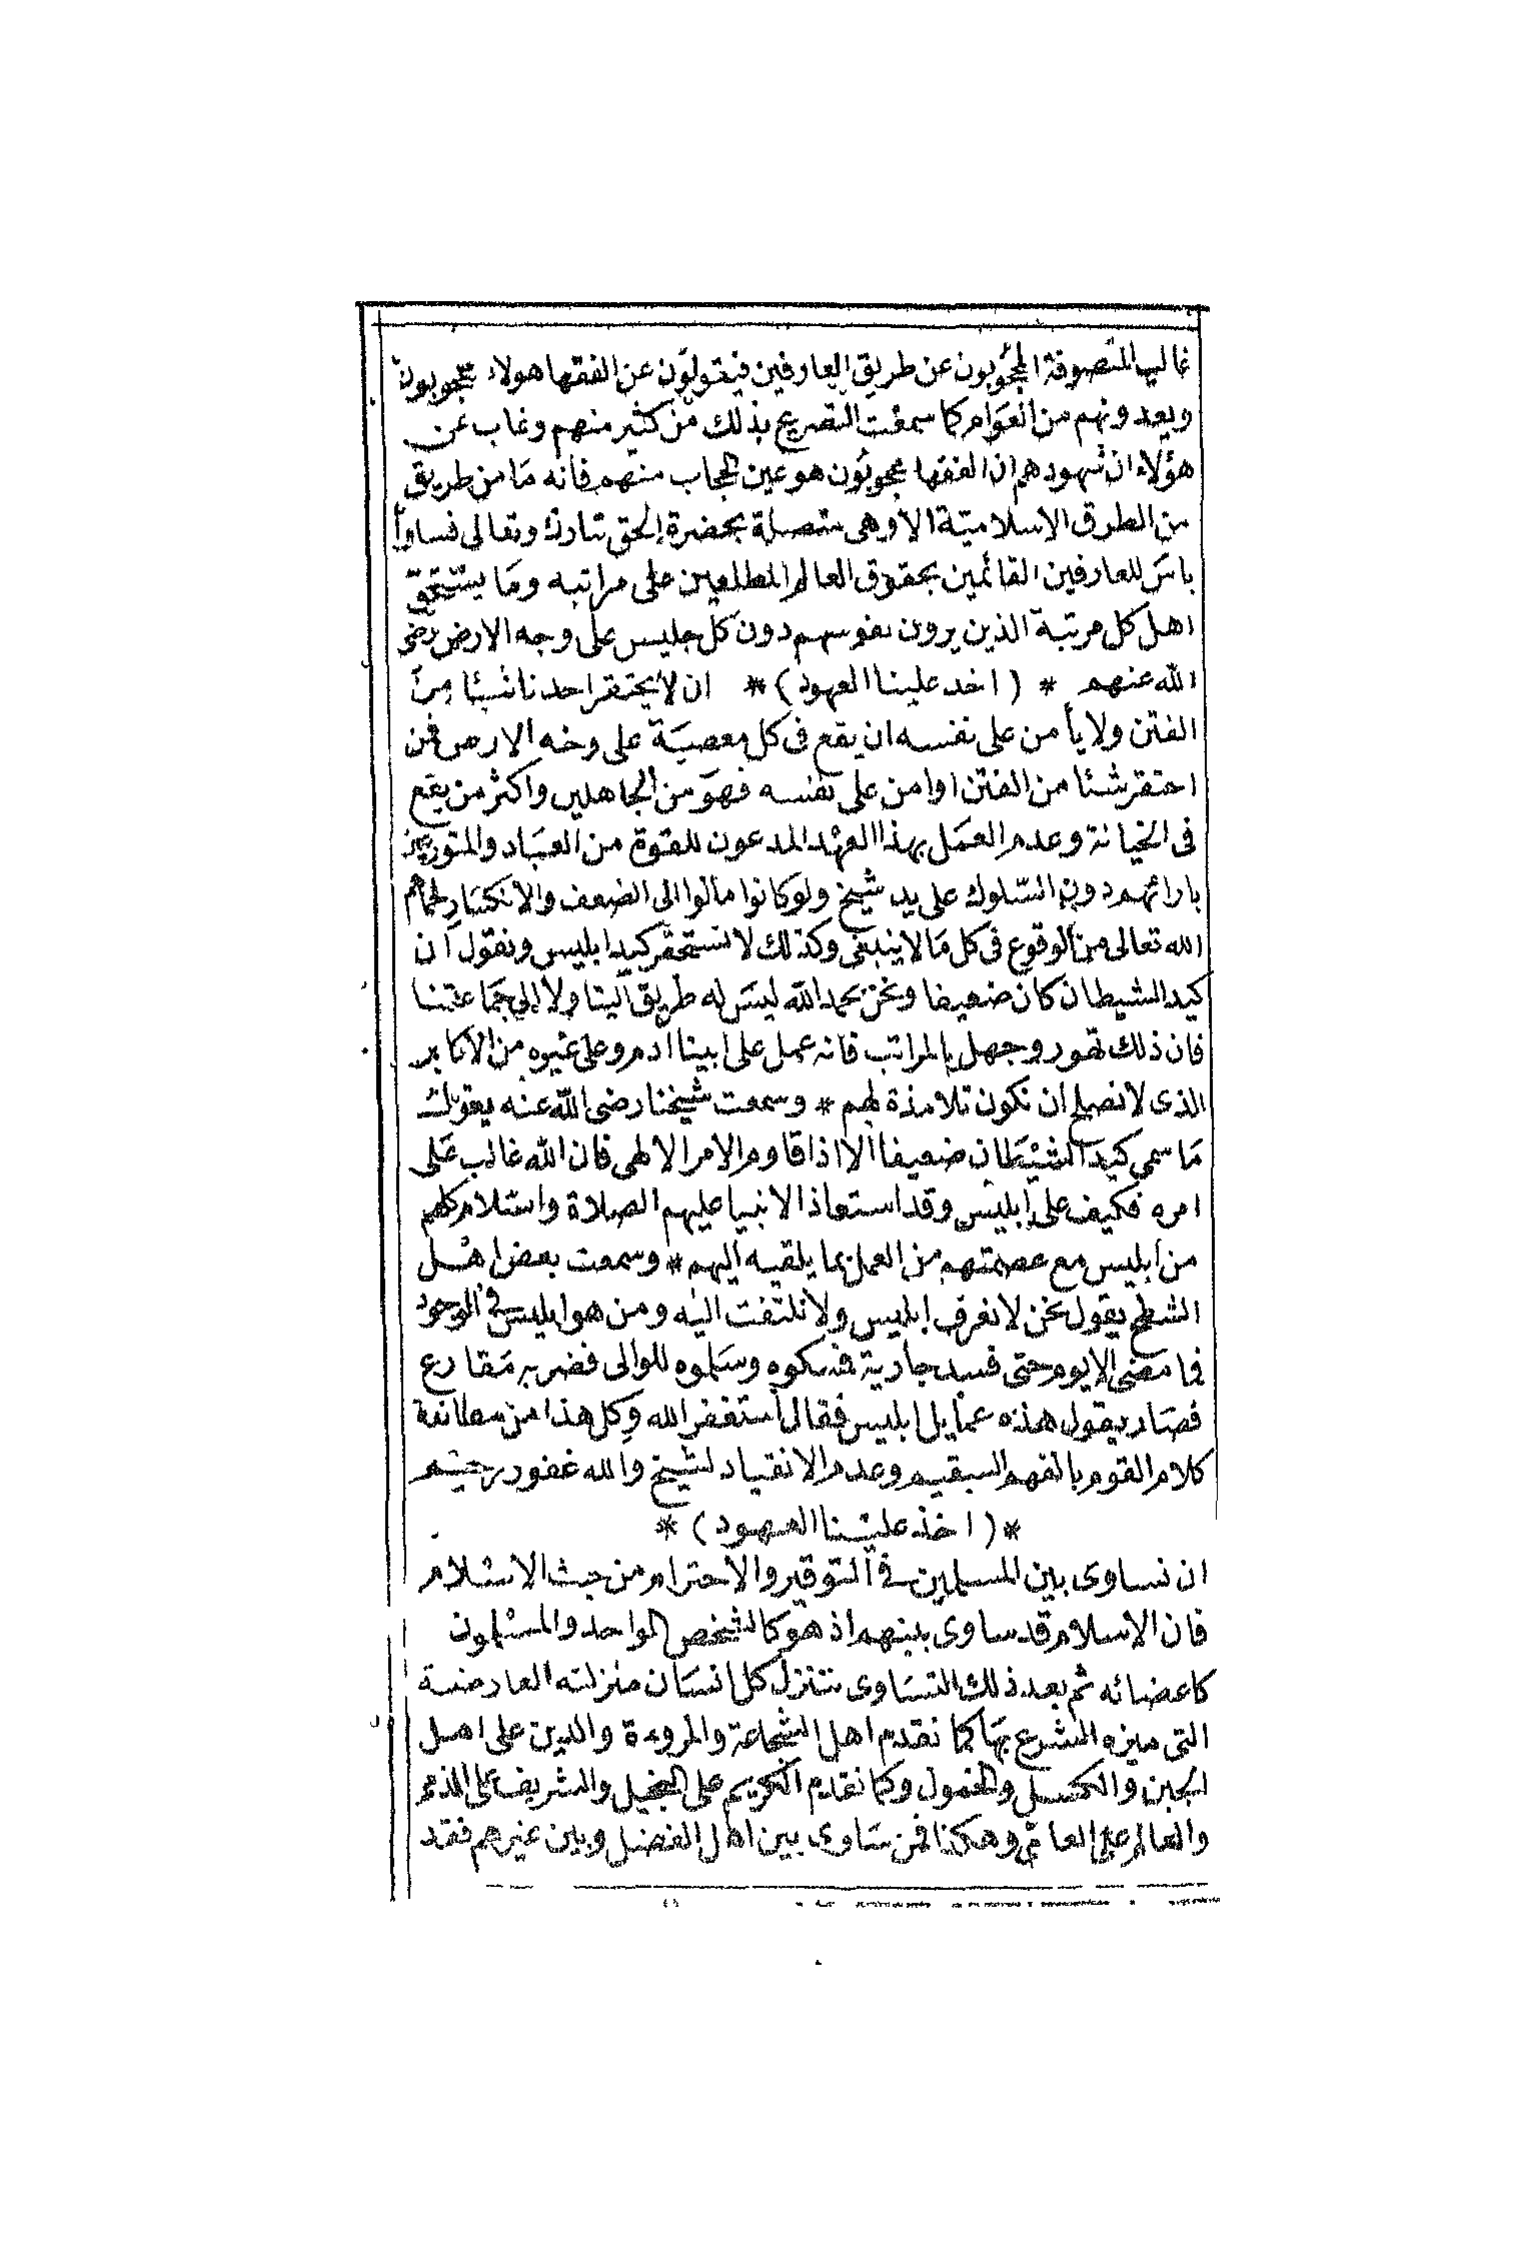 غالب المتصوفة المحجوبون عن طريق العارفين فيقولون عن الفقها هولاء محجوبون
ويعدونهم من العوام كما سمعت التصريح بذلك من كثير منهم وغاب عن
هؤلاء ان شهودهم ان الفقها محجوبون هو عين الحجاب منهم فانه ما من طريق
من الطرق الاسلامية الا وهى متصلة بحضرة الحق تبارك وتعالى
باس للعارفين القائمين بحقوق العالم المطلعين على مراتبه وما يستحق
اهل كل مرتبة الذين يرون نفوسهم دون كل جليس على وجه الارض رضى
الله عنهم * (اخذ علينا العهود) * ان لا يحتقر احدنا شيئا من
الفتن ولا يأمن على نفسه ان يقع فى كل معصية على وجه الارض فمن
احتقر شئا من الفتن او امن على نفسه فهو من الجاهلين واكثر من يقع
فى الخيانة وعدم العمل بهذا العهد المدعون للقوة من العباد والمتورعين
بارائهم دون السلوك على يد شيخ ولو كانوا مالوا الى الضعف والانكسار لحماهم
الله تعالى من الوقوع فى كل ما لا ينبغى وكذلك لا نستحقر كيد ابليس ونقول ان
كيد الشيطان كان ضعيفا ونحن بحمد الله ليس له طريق الينا ولا الى جماعتنا
فان ذلك تهور وجهل بالمراتب فانه عمل على ابينا ادم وعلى غيره من الاكابر
الذى لا نصلح ان نكون تلامذة لهم * وسمعت شيخنا رضى الله عنه يقول
ما سمى كيد الشيطان ضعيفا الا اذا قاوم الامر الالهى فان الله غالب على
امره فكيف على ابليس وقد استعاذ الانبيا عليهم الصلاة والسلام كلهم
من ابليس مع عصمتهم من العمل بما يلقيه اليهم * وسمعت بعض اهل
الشطح يقول نحن لا نعرف ابليس ولا نلتفت اليه ومن هو ابليس فى الوجود
فما مضى الا يوم حتى فسد بجارية فمسكوه وسلموه للوالى فضربه مقارع
فصار يقول هذه عمايل ابليس فقال استغفر الله وكل هذا من مطالعة
كلام القوم بالفهم السقيم وعدم الانقياد لشيخ والله غفور رحيم
* (اخذ علينا العهود) *
ان نساوى بين المسلمين فى التوقير والاحترام من حيث الاسلام
فان الاسلام قد ساوى بينهم اذ هو كالشخص الواحد والمسلمون
كاعضائه ثم بعد ذلك التساوى ننزل كل انسان منزلته العارضة
التى ميزه الشرع بها كما نقدم اهل الشجاعة والمروءة والدين على اهل
الجبن والكسل والخمول وكما نقدم الكريم على البخيل والشريف على
والعالم على العامى وهكذا فمن ساوى بين اهل الفضل وبين غيرهم فقد